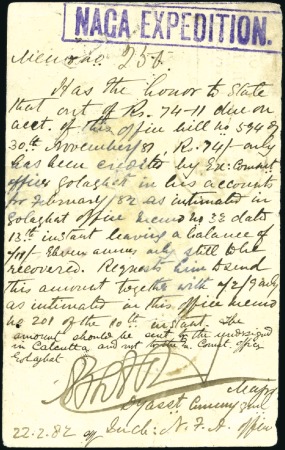 NAGA EXPEDITION.
Memo no. 256.
Has the honor to State
that out of Rs. 74-11 due on
acct. of this office bill no 594 of
30th November 81, Rs. 74/- only
has been credited by Ex: Comst
officer Golaghat in his accounts
for February/82 as intimated in
Golaghat office memo no 33 dated
13th instant leaving a balance of
-/11/- Eleven annas only still to be
recovered. Requests him to send
this amount together with
as intimated in this office memo
no 201 of the 10th instant. The
amount should be sent to the undersigned
in Calcutta and not to the Ex. Comst. officer
Golaghat
Major
Dy Asst Commy Genl
22-2-82 Inch: N. F. A. office